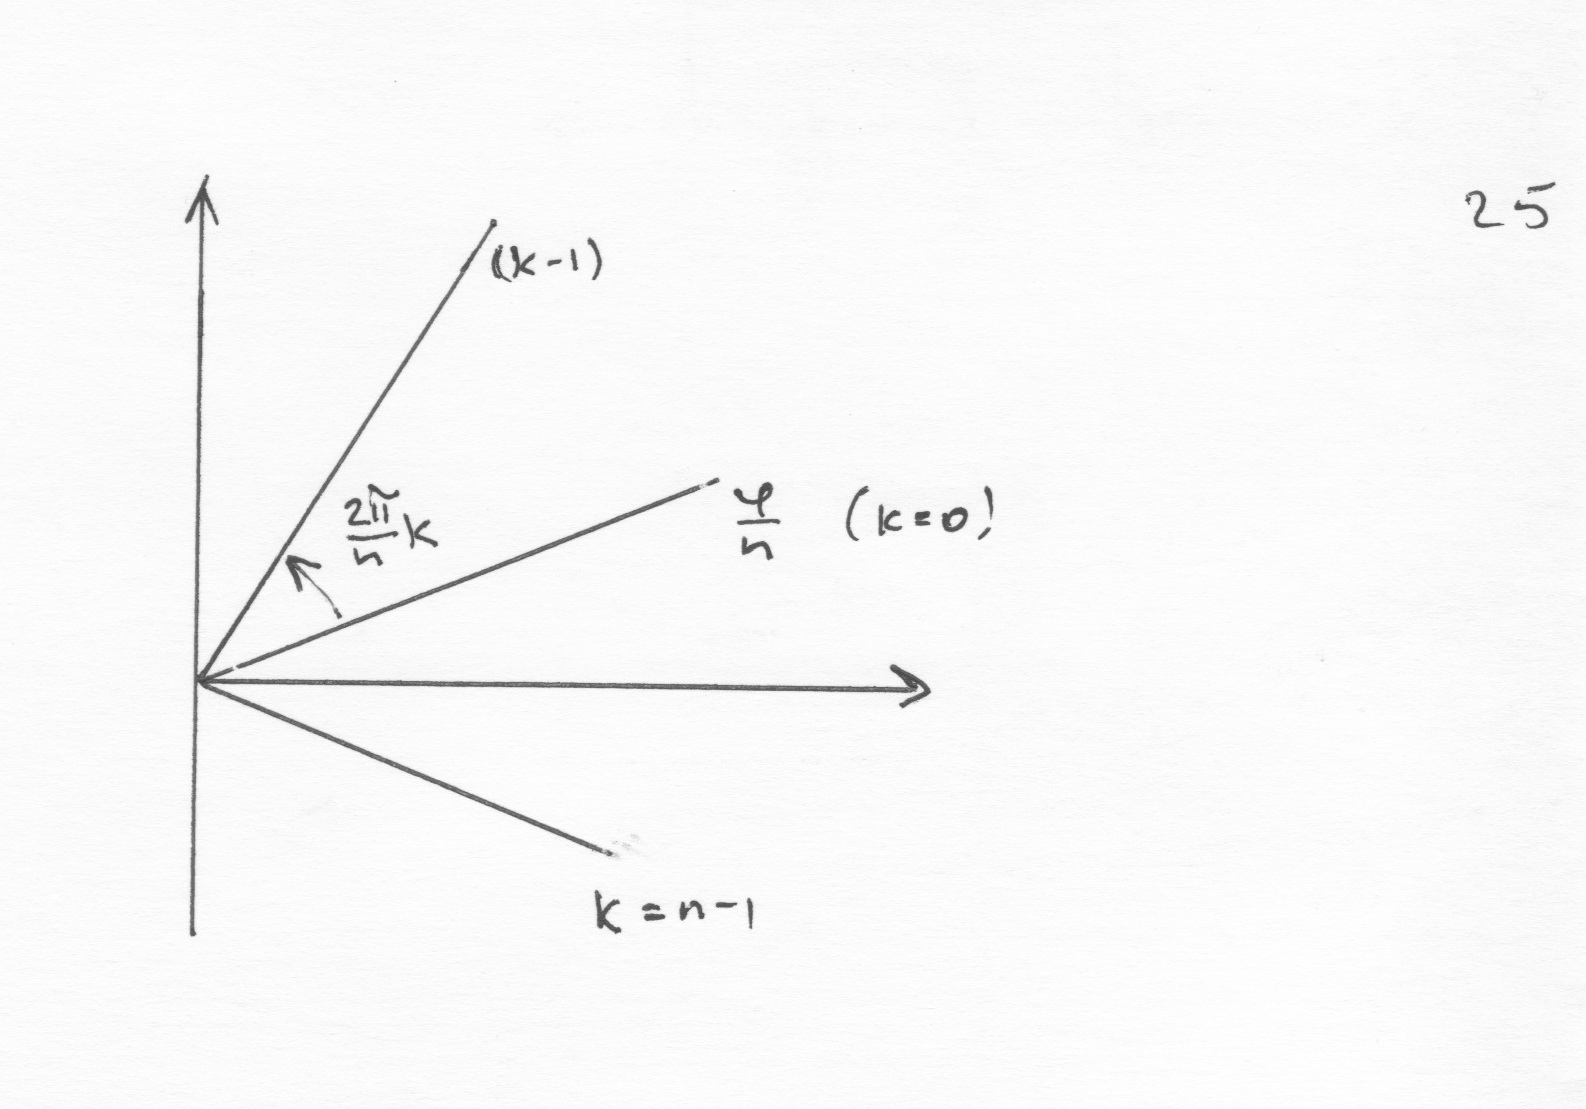 25
(k-1)
2π/n k
φ/n (k=0)
k=n-1